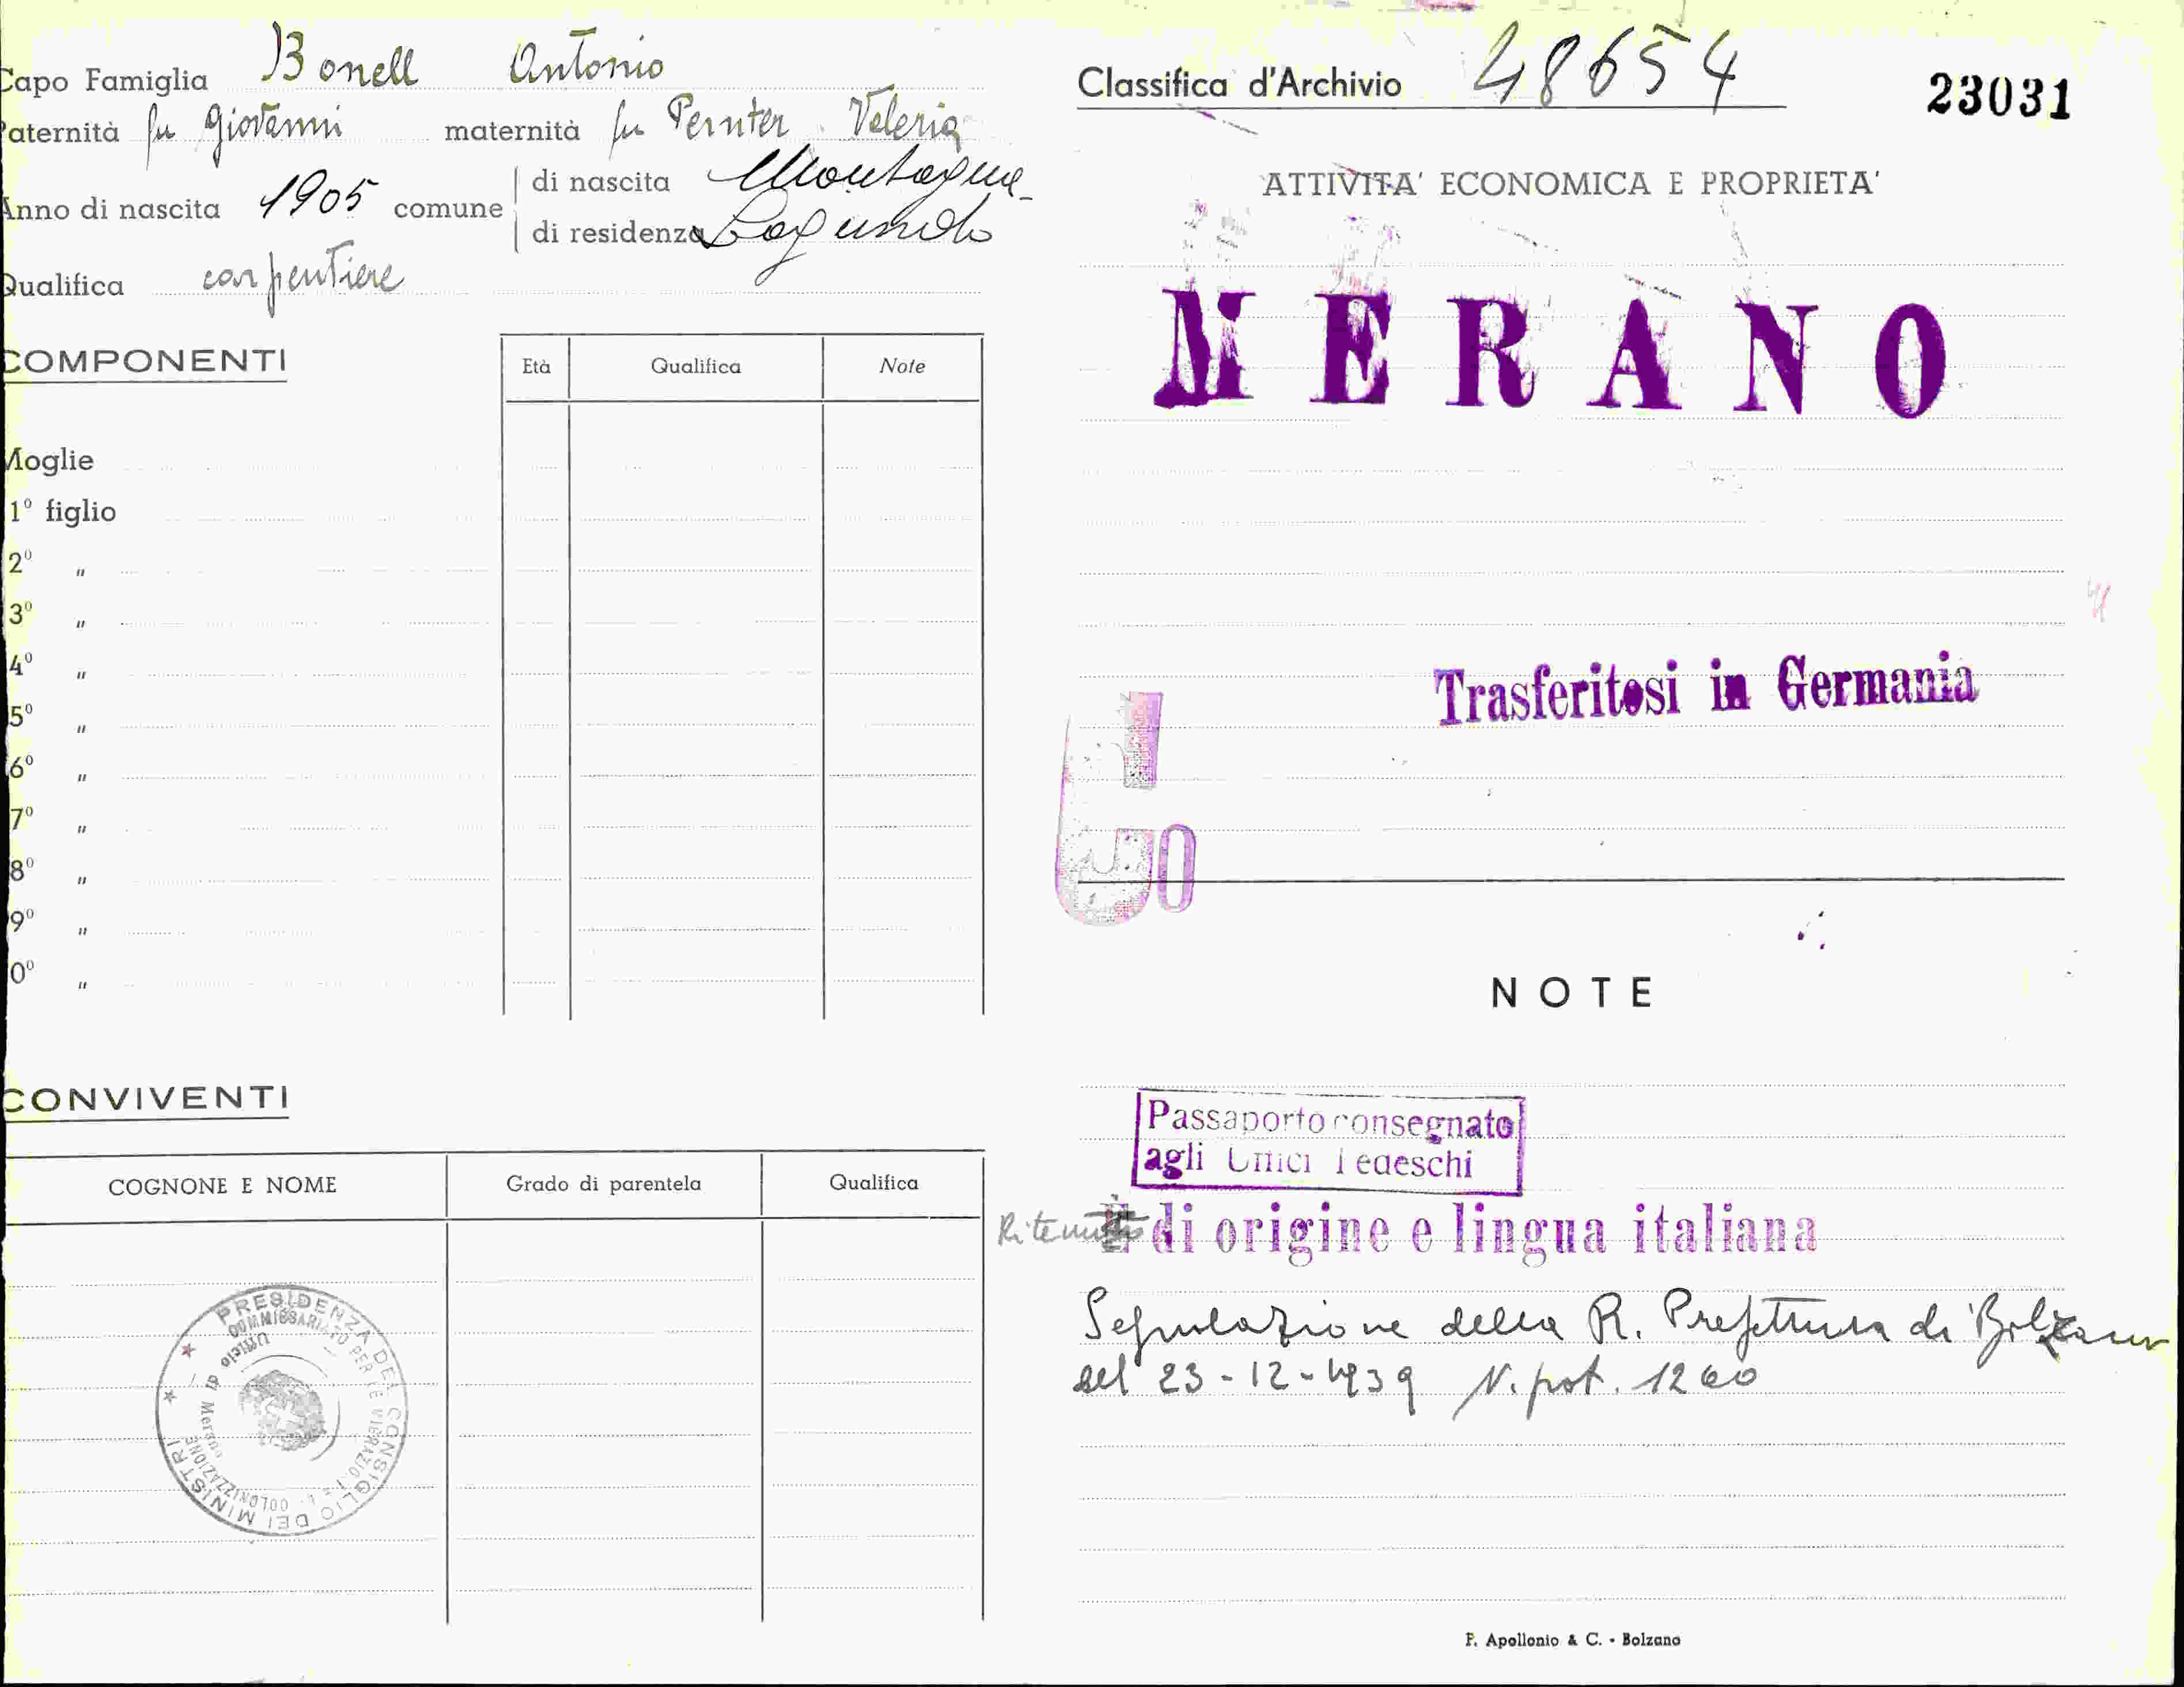 Capo Famiglia Bonell Antonio
Paternità fu Giovanni maternità fu Pernter Valeria
Anno di nascita 1905 comune di nascita Montagna
di residenza Lagundo
Qualifica carpentiere
COMPONENTI
Età Qualifica Note
Moglie
1º figlio
2º "
3º "
4º "
5º "
6º "
7º "
8º "
9º "
0º "
CONVIVENTI
COGNONE E NOME Grado di parentela Qualifica
PRESIDENZA DEL CONSIGLIO DEI MINISTRI
COMMISSARIATO PER LE MIGRAZIONI E L COLONIZZAZIONE
Ufficio di Merano
Classifica d'Archivio 48654
23031
ATTIVITA' ECONOMICA E PROPRIETA'
MERANO
Trasferitosi in Germania
NOTE
Passaporto consegnato
agli Uffici Tedeschi
Ritenuto di origine e lingua italiana
Segnalazione della R. Prefettura di Bolzano
del 23-12-1939 N. prot. 1260
P. Apollonio & C. - Bolzano